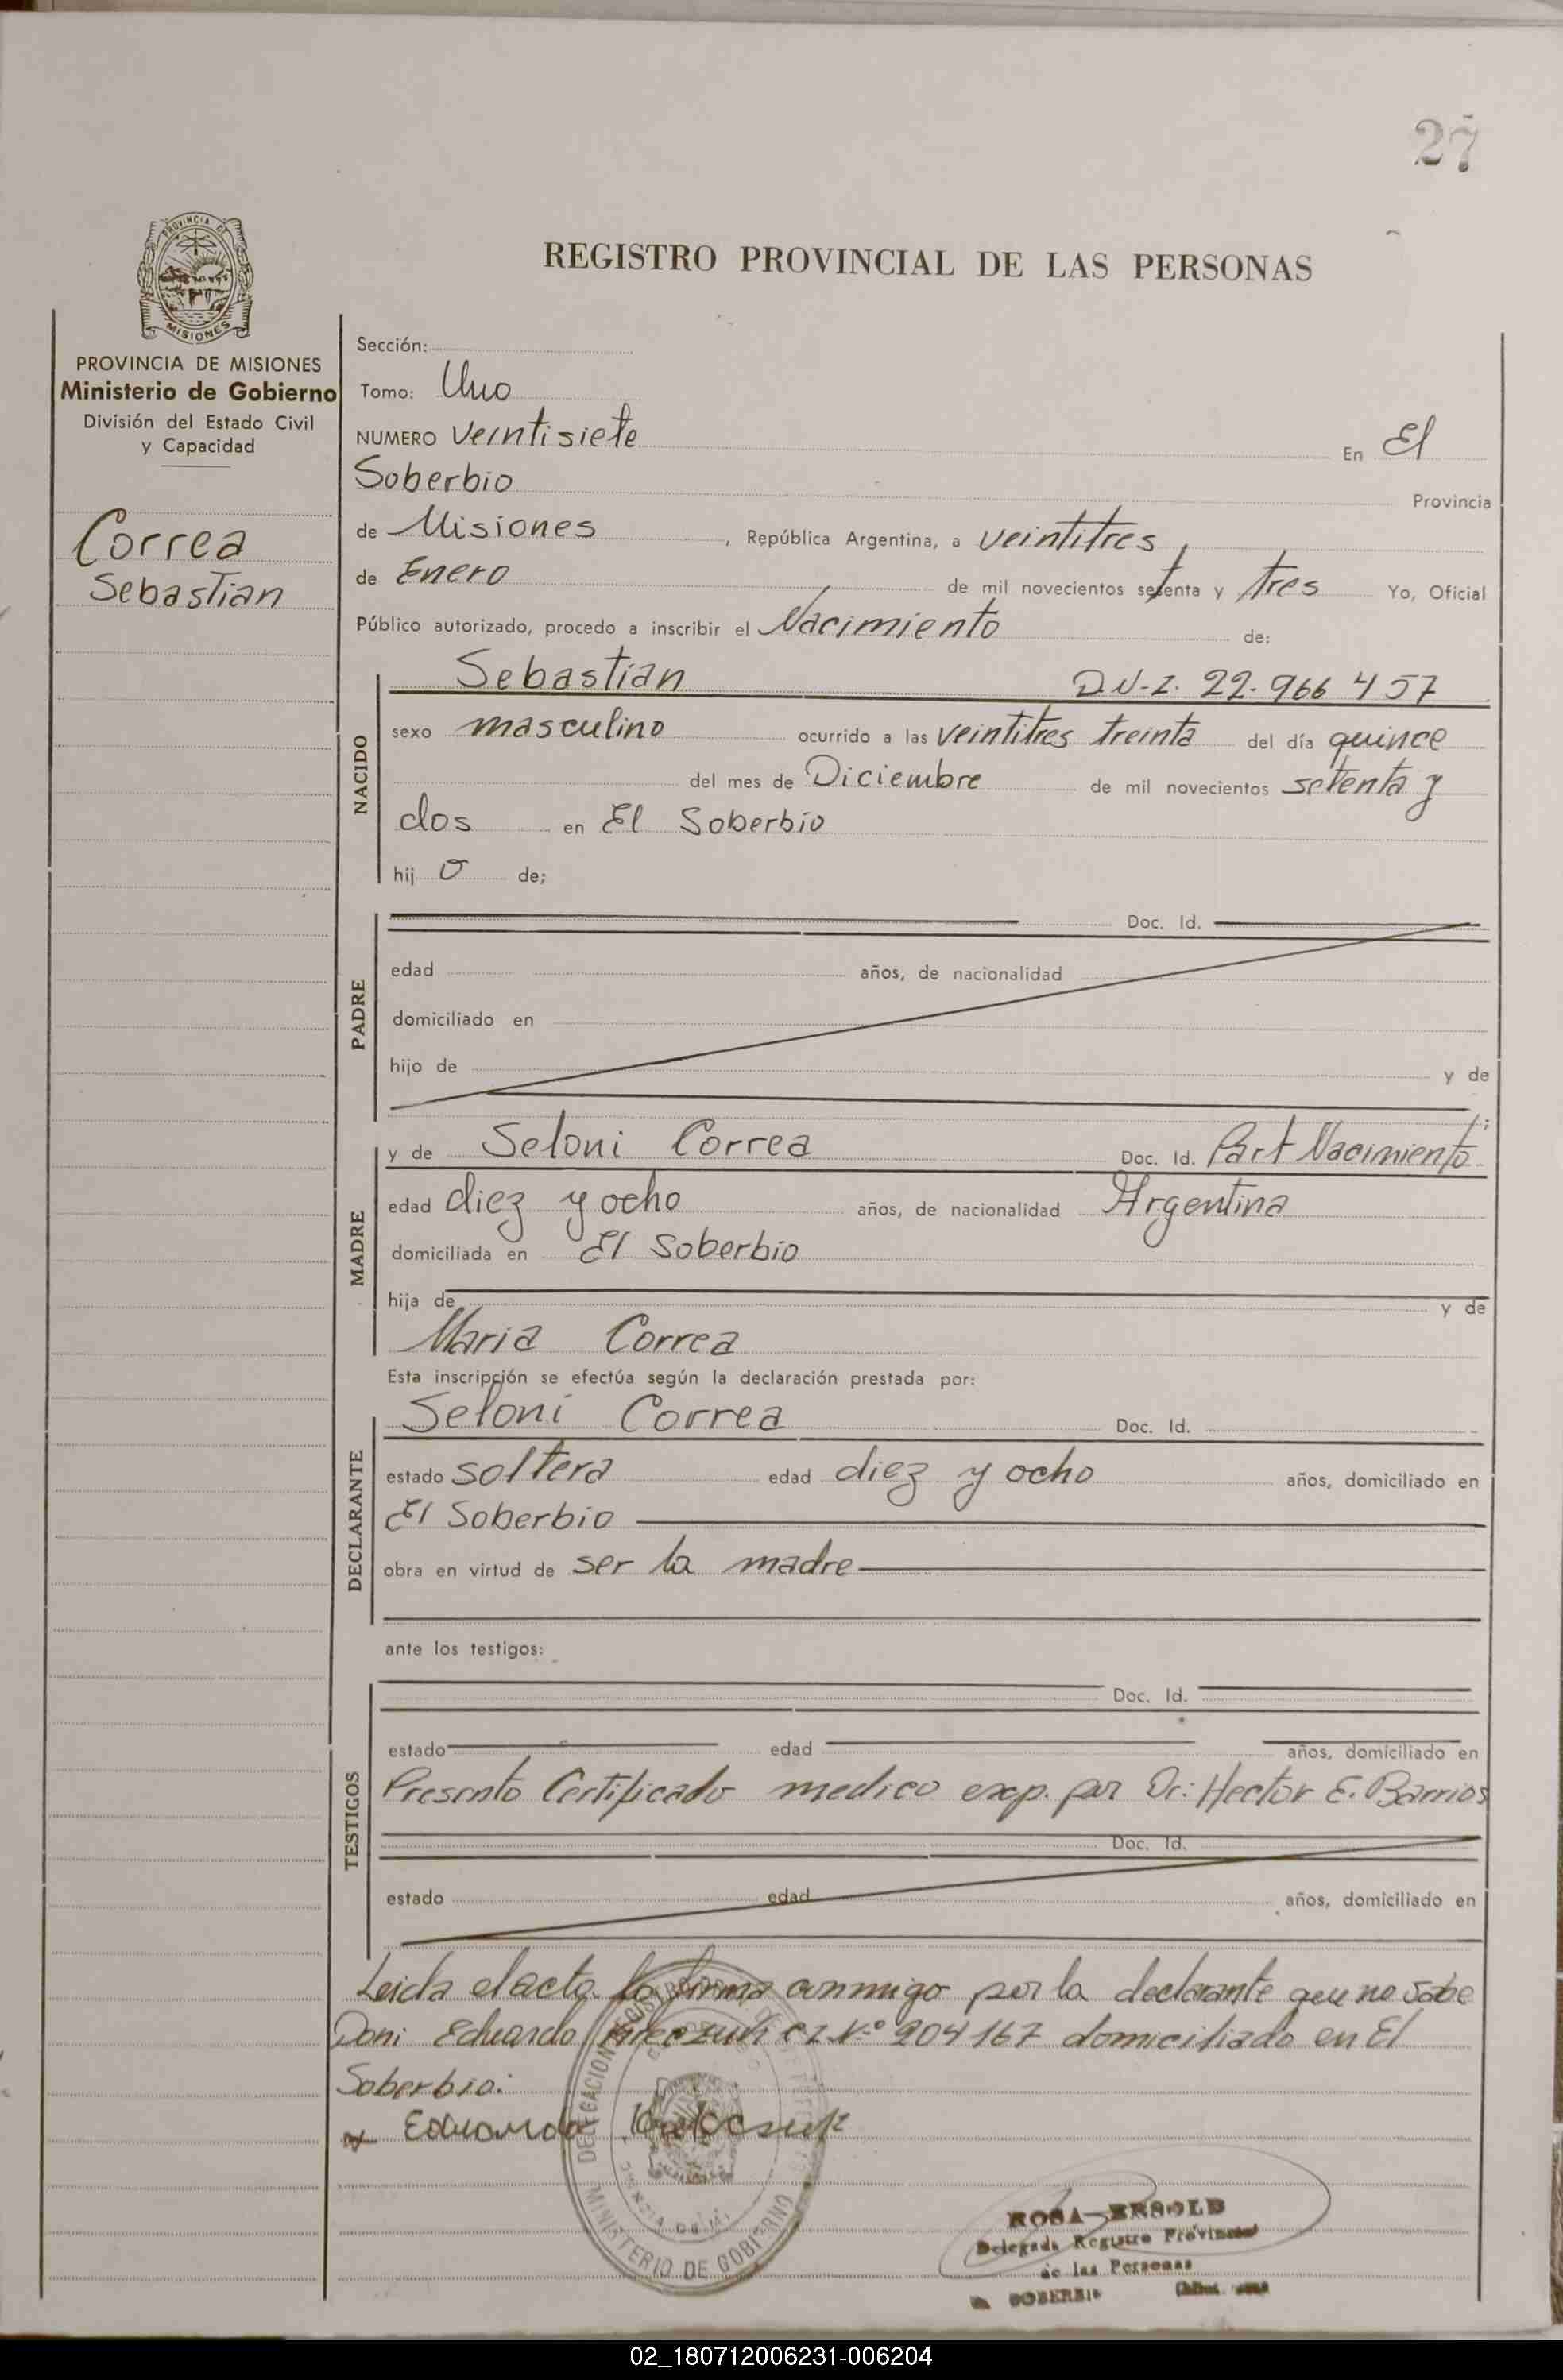 27
PROVINCIA DE
MISIONES
REGISTRO PROVINCIAL DE LAS PERSONAS
PROVINCIA DE MISIONES
Ministerio de Gobierno
División del Estado Civil
y Capacidad
Correa
Sebastian
Sección:
Tomo: Uno
NUMERO veintisiete En El
Soberbio Provincia
de Misiones, República Argentina, a veintitres,
de Enero de mil novecientos setenta y tres Yo, Oficial
Público autorizado, procedo a inscribir el Nacimiento de:
NACIDO
Sebastian D.N-I. 22.966 457
sexo masculino ocurrido a las veintitres treinta del día quince
del mes de Diciembre de mil novecientos setenta y
dos en El Soberbio
hij o de;
PADRE
Doc. Id.
edad años, de nacionalidad
domiciliado en
hijo de y de
MADRE
y de Seloni Correa Doc. Id. Part Nacimiento
edad diez y ocho años, de nacionalidad Argentina
domiciliada en El Soberbio
hija de y de
Maria Correa
Esta inscripción se efectúa según la declaración prestada por:
DECLARANTE
Seloni Correa Doc. Id.
estado soltera edad diez y ocho años, domiciliado en
El Soberbio
obra en virtud de ser la madre
ante los testigos:
TESTIGOS
Doc. Id.
estado edad años, domiciliado en
Presento Certificado medico exp. por Dr: Hector E. Barrios
Doc. Id.
estado edad años, domiciliado en
Leida el acta la firma conmigo por la declarante que no sabe
Doni Eduardo CI Nº 904167 domiciliado en El
Soberbio:
Eduardo
DELEGACION
MINISTERIO DE GOBIERNO
ROSA
Delegada Registro Provincial
de las Personas
SOBERBIO
02_180712006231-006204